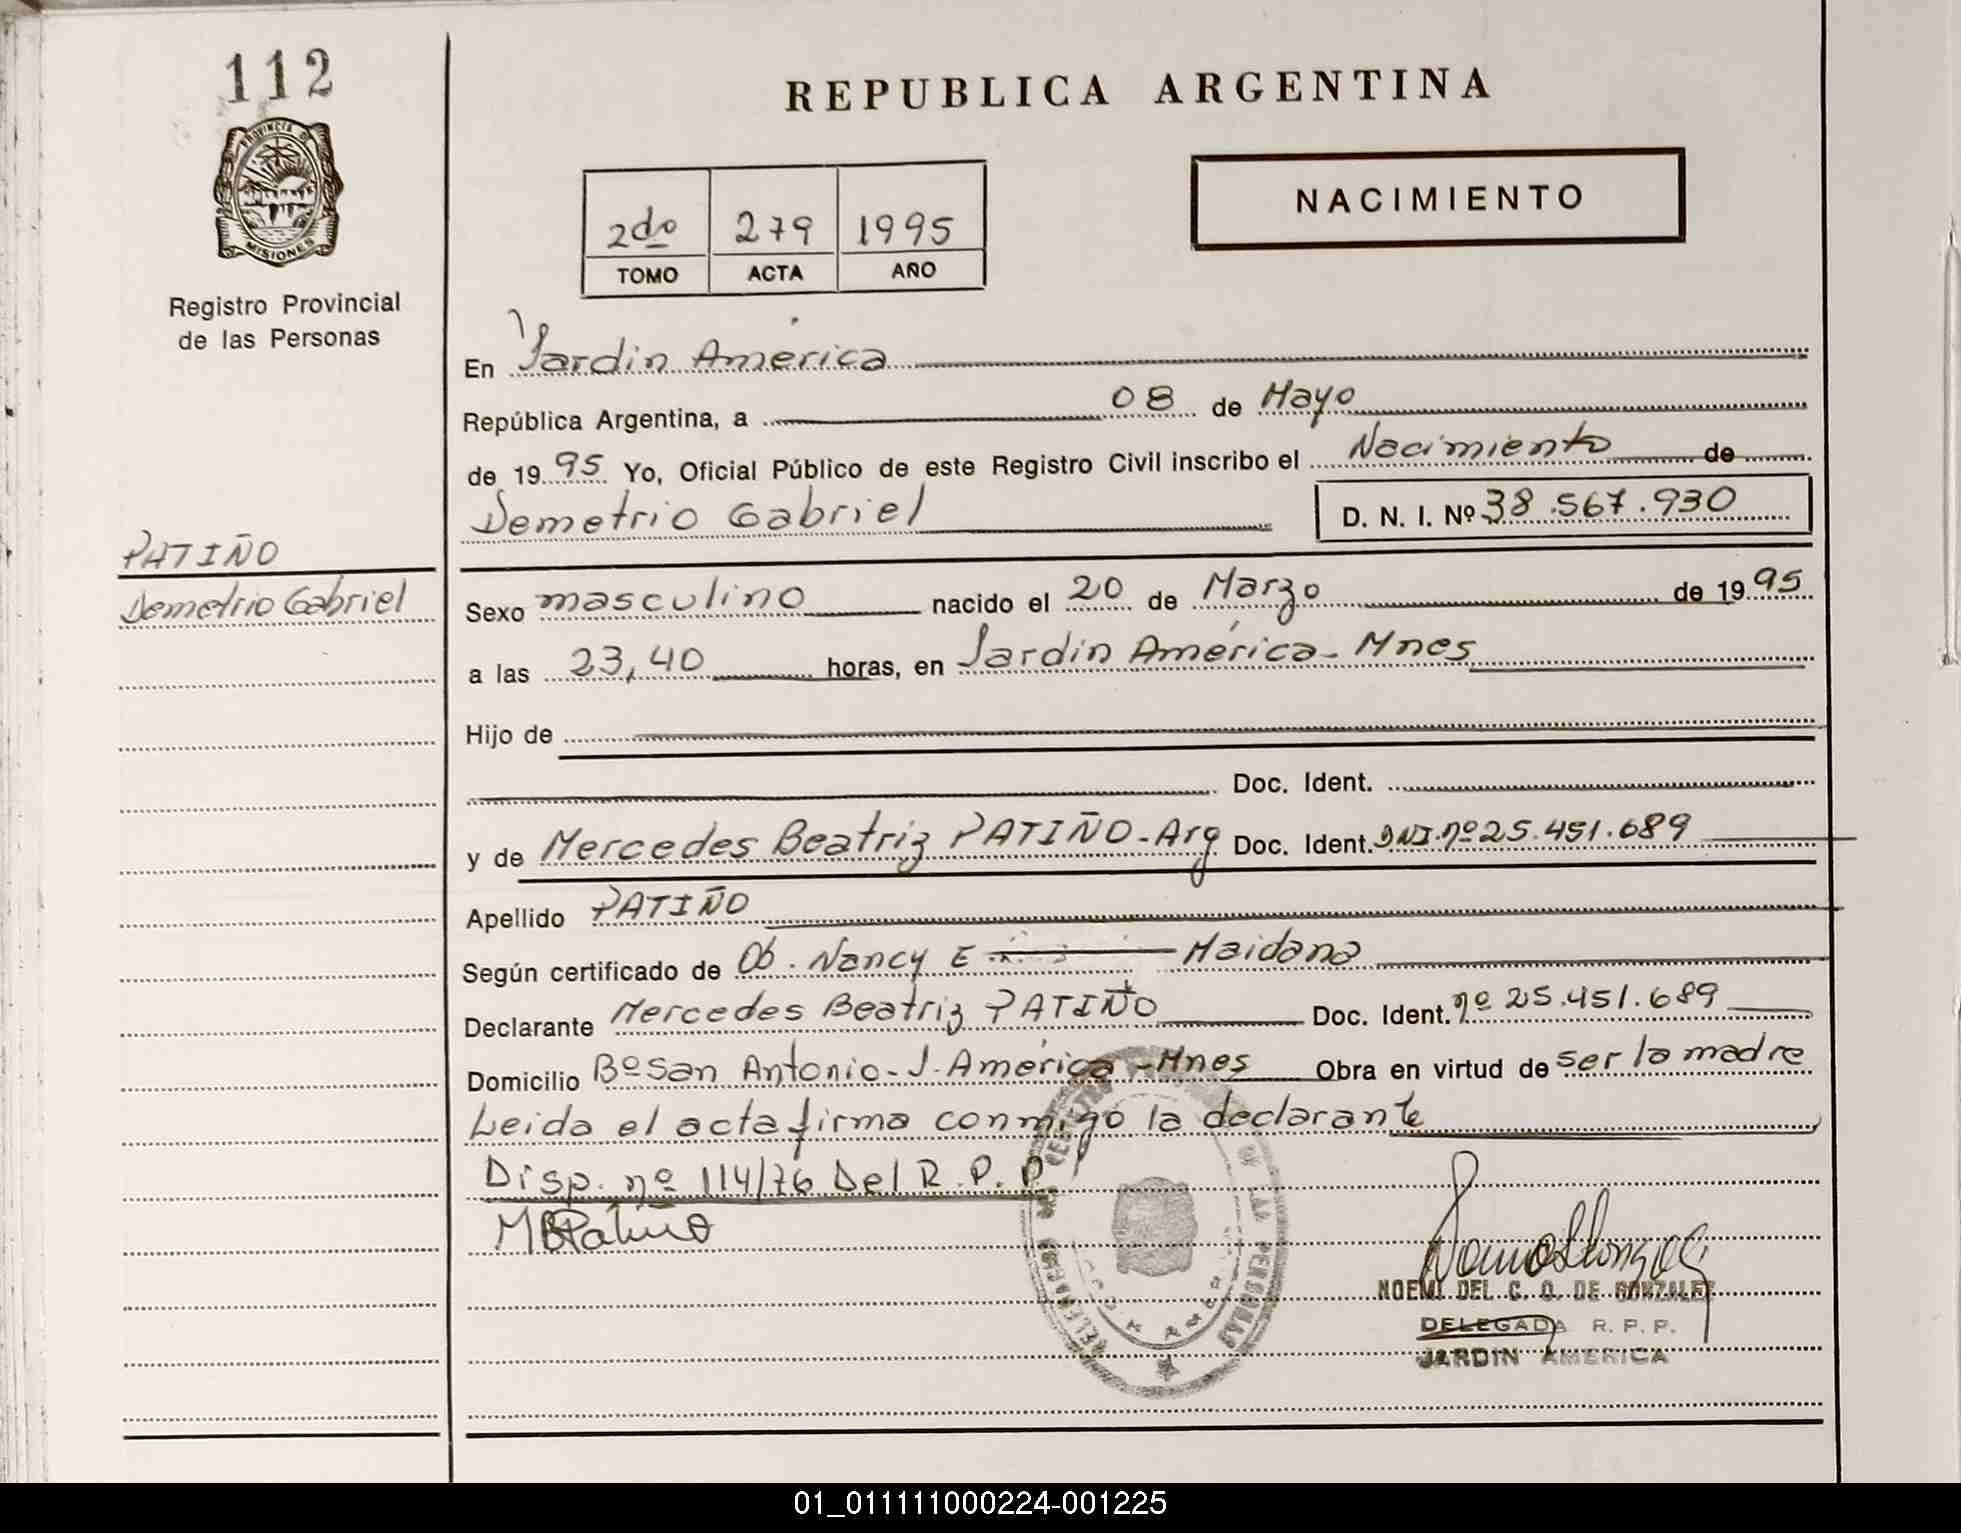 112
PROVINCIA DE
MISIONES
Registro Provincial
de las Personas
REPUBLICA ARGENTINA
NACIMIENTO
2do 279 1995
TOMO ACTA AÑO
En Jardin América
República Argentina, a 08 de Mayo
de 1995 Yo, Oficial Público de este Registro Civil inscribo el Nacimiento de
Demetrio Gabriel D. N. I. Nº 38.567.930
PATIÑO
Demetrio Gabriel
Sexo masculino nacido el 20 de Marzo de 1995
a las 23,40 horas, en Jardin América - Mnes
Hijo de
Doc. Ident.
y de Mercedes Beatriz PATIÑO - Arg Doc. Ident. DNI. nº 25.451.689
Apellido PATIÑO
Según certificado de Ob. Nancy E Maidana
Declarante Mercedes Beatriz PATIÑO Doc. Ident. nº 25.451.689
Domicilio Bº San Antonio - J. América - Mnes Obra en virtud de ser la madre
Leida el acta firma conmigo la declarante
Disp. nº 114/76 Del R. P. P.
MBPatiño
DE LAS PERSONAS
NOEMI DEL C. O. DE GONZALEZ
DELEGADA R. P. P.
JARDIN AMERICA
01_011111000224-001225